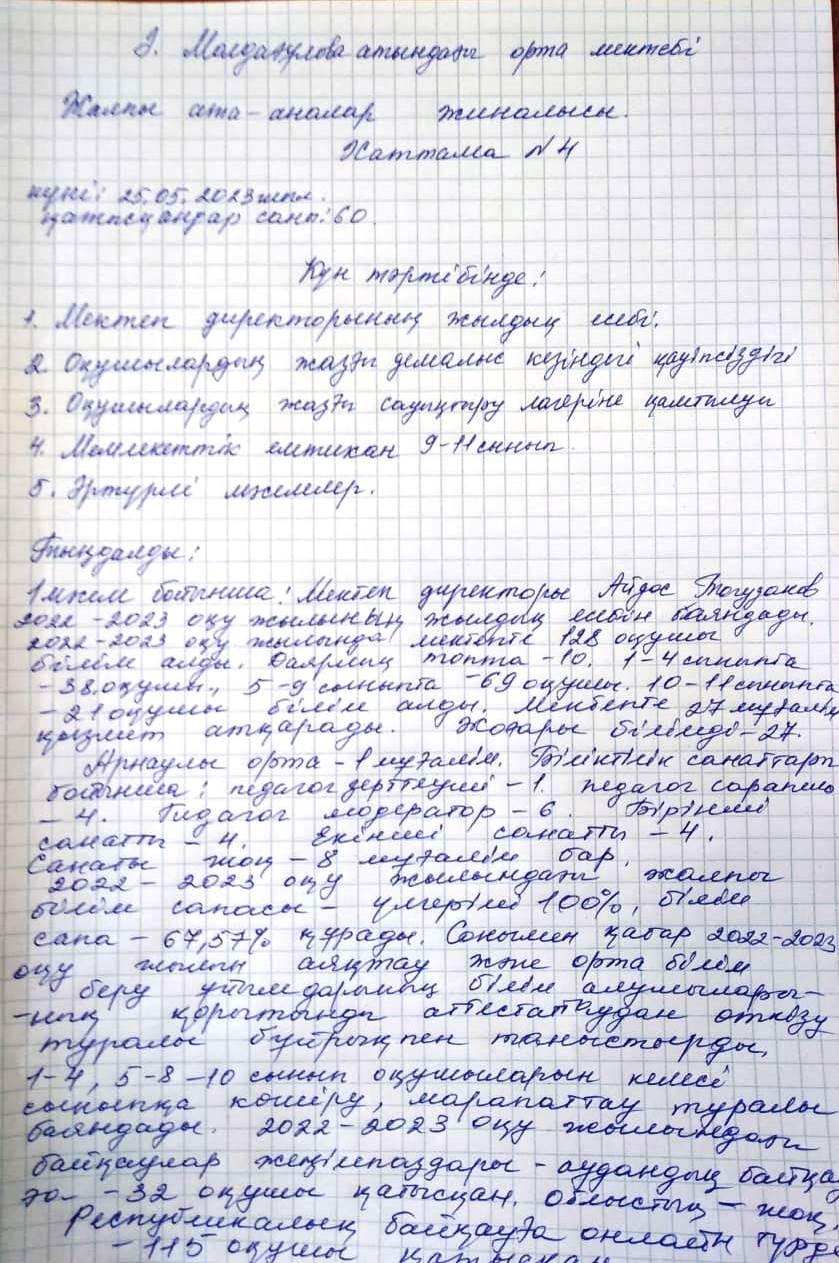 Ә. Молдағұлова атындағы орта мектебі
Жалпы ата-аналар жиналысы.
Хаттама №4
күні: 25.05.2023жыл.
қатысқандар саны: 60.
Күн тәртібінде:
1. Мектеп директорының жылдық есебі.
2. Оқушылардың жазғы демалыс кезіндегі қауіпсіздігі
3. Оқушылардың жазғы сауықтыру лагеріне қамтылуы
4. Мемлекеттік емтихан 9-11 сынып.
5. Әртүрлі мәселелер.
Тыңдалды:
1 мәселе бойынша: Мектеп директоры Айдос Тогузаков
2022-2023 оқу жылының жылдық есебін баяндады.
2022-2023 оқу жылында мектепте 128 оқушы
білім алды. Даярлық топта -10. 1-4 сыныпта
-38 оқушы., 5-9 сыныпта -69 оқушы. 10-11 сыныпта
-21 оқушы білім алды. Мектепте 27 мұғалім
қызмет атқарады. Жоғары білімді -27.
Арнаулы орта -1 мұғалім. Біліктілік санаттары
бойынша: педагог зерттеуші -1. педагог сарапшы
-4. Педагог модератор -6. Бірінші
санатты -4. Екінші санатты -4.
Санаты жоқ -8 мұғалім бар.
2022-2023 оқу жылындағы жалпы
білім сапасы - үлгерімі 100%, білім
сапа - 67,57% құрады. Сонымен қатар 2022-2023
оқу жылын аяқтау және орта білім
беру ұйымдарының білім алушылары-
-ның қорытынды аттестаттаудан өткізу
туралы бұйрықпен таныстырды,
1-4, 5-8-10 сынып оқушыларын келесі
сыныпқа көшіру, марапаттау туралы
баяндады. 2022-2023 оқу жылындағы
байқаулар жеңімпаздары - аудандық байқау
ға -32 оқушы қатысқан. Облыстық - жоқ.
Республикалық байқауға онлайн түрде
-115 оқушы қатысқан